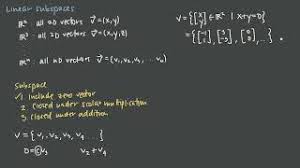 Linear subspaces
ℝ² all 2D vectors v⃗ = (x,y)
ℝ³ all 3D vectors v⃗ = (x,y,z)
ℝⁿ all nD vectors v⃗ = (v₁, v₂, v₃, ... vₙ)
Subspace
1. Include zero vector
2. closed under scalar multiplication
3. closed under addition
V = { v₁, v₂, v₃, v₄, ... }
v₂ + v₄
V = {[x y] ∈ ℝ² | x+y=0}